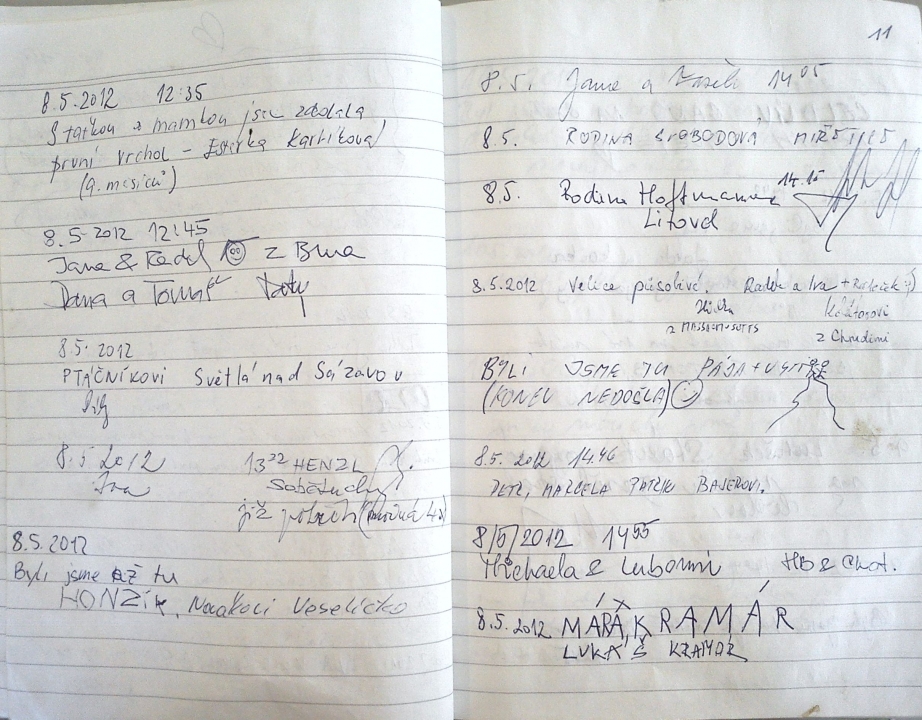 8.5.2012 12:35
S taťkou a mamkou jsem zdolala
první vrchol - Esterka Karlíková
(9. měsíců)
8.5.2012 12:45
Jana & Radek z Brna
Dana a Tomáš
8.5.2012
PTÁČNÍKOVI Světlá nad Sázavou
8.5.2012
Iva
13²² HENZL
Soběšuchy
již po
8.5.2012
Byli jsme až tu
HONZÍK, Novákovi Voseličko
11
8.5. Jana a 14⁰⁵
8.5. RODINA SVOBODOVÁ MIŘETICE
8.5. Rodina Hoffmannova 14.15
Litovel
8.5.2012 Velice působivé. Radek a Iva +
Kolátorovi
Z MASSACHUSETTS
z Chrudimi
BYLI JSME TU PÁJA +
(KONEV NEDOŠLA)
8.5.2012 14.46
PETR, MARCELA PATRIK BAJEROVI.
8/5/2012 14⁵⁵
Michaela & Lubomír HB & Chot.
8.5.2012 MÁRA, KRAMÁR
LUKÁŠ KRAMÁR